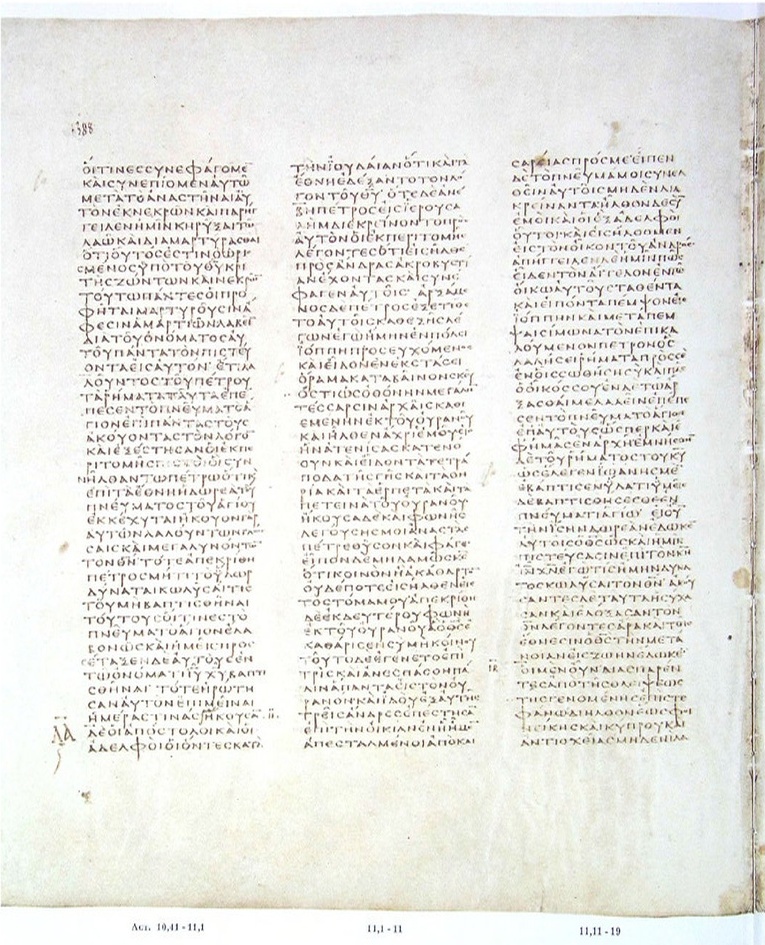 ΟΙΤΙΝΕϹϹΥΝΕΦΑΓΟΜΕ
ΚΑΙϹΥΝΕΠΙΟΜΕΝΑΥΤΩ
ΜΕΤΑΤΟΑΝΑϹΤΗΝΑΙΑΥ
ΤΟΝΕΚΝΕΚΡΩΝΚΑΙΠΑΡΗΓ
ΓΕΙΛΕΝΗΜΙΝΚΗΡΥΞΑΙΤΩ
ΛΑΩΚΑΙΔΙΑΜΑΡΤΥΡΑϹΘΑΙ
ΟΤΙΟΥΤΟϹΕϹΤΙΝΟΩΡΙ
ϹΜΕΝΟϹΥΠΟΤΟΥΘΥΚΡΙ
ΤΗϹΖΩΝΤΩΝΚΑΙΝΕΚΡΩ
ΤΟΥΤΩΠΑΝΤΕϹΟΙΠΡΟ
ΦΗΤΑΙΜΑΡΤΥΡΟΥϹΙΝΑ
ΦΕϹΙΝΑΜΑΡΤΙΩΝΛΑΒΕΙ
ΔΙΑΤΟΥΟΝΟΜΑΤΟϹΑΥ
ΤΟΥΠΑΝΤΑΤΟΝΠΙϹΤΕΥ
ΟΝΤΑΕΙϹΑΥΤΟΝ ΕΤΙΛΑ
ΛΟΥΝΤΟϹΤΟΥΠΕΤΡΟΥ
ΤΑΡΗΜΑΤΑΤΑΥΤΑΕΠΕ
ΠΕϹΕΝΤΟΠΝΕΥΜΑΤΟΑ
ΓΙΟΝΕΠΙΠΑΝΤΑϹΤΟΥϹ
ΑΚΟΥΟΝΤΑϹΤΟΝΛΟΓΟ
ΚΑΙΕΞΕϹΤΗϹΑΝΟΙΕΚΠΕ
ΡΙΤΟΜΗϹΠΙϹΤΟΙΟΙϹΥΝ
ΗΛΘΑΝΤΩΠΕΤΡΩΟΤΙΚ
ΕΠΙΤΑΕΘΝΗΗΔΩΡΕΑΤΟΥ
ΠΝΕΥΜΑΤΟϹΤΟΥΑΓΙΟΥ
ΕΚΚΕΧΥΤΑΙΗΚΟΥΟΝΓΑΡ
ΑΥΤΩΝΛΑΛΟΥΝΤΩΝΓΛΩϹ
ϹΑΙϹΚΑΙΜΕΓΑΛΥΝΟΝΤΩ
ΤΟΝΘΝΤΟΤΕΑΠΕΚΡΙΘΗ
ΠΕΤΡΟϹΜΗΤΙΤΟΥΔΩΡ
ΔΥΝΑΤΑΙΚΩΛΥϹΑΙΤΙϹ
ΤΟΥΜΗΒΑΠΤΙϹΘΗΝΑΙ
ΤΟΥΤΟΥϹΟΙΤΙΝΕϹΤΟ
ΠΝΕΥΜΑΤΟΑΓΙΟΝΕΛΑ
ΒΟΝΩϹΚΑΙΗΜΕΙϹΠΡΟϹ
ΕΤΑΞΕΝΔΕΑΥΤΟΥϹΕΝ
ΤΩΟΝΟΜΑΤΙΙΥΧΥΒΑΠΤΙ
ϹΘΗΝΑΙ ΤΟΤΕΗΡΩΤΗ
ϹΑΝΑΥΤΟΝΕΠΙΜΕΙΝΑΙ
ΗΜΕΡΑϹΤΙΝΑϹΗΚΟΥϹΑ
ΔΕΟΙΑΠΟϹΤΟΛΟΙΚΑΙΟΙ
ΑΔΕΛΦΟΙΟΙΟΝΤΕϹΚΑΤΑ
ΤΗΝΙΟΥΔΑΙΑΝΟΤΙΚΑΙΤΑ
ΕΘΝΗΕΔΕΞΑΝΤΟΤΟΝΛΟ
ΓΟΝΤΟΥΘΥ ΟΤΕΔΕΑΝΕ
ΒΗΠΕΤΡΟϹΕΙϹΙΕΡΟΥϹΑ
ΛΗΜΔΙΕΚΡΙΝΟΝΤΟΠΡΟϹ
ΑΥΤΟΝΟΙΕΚΠΕΡΙΤΟΜΗϹ
ΛΕΓΟΝΤΕϹΟΤΙΕΙϹΗΛΘΕ
ΠΡΟϹΑΝΔΡΑϹΑΚΡΟΒΥϹΤΙ
ΑΝΕΧΟΝΤΑϹΚΑΙϹΥΝΕ
ΦΑΓΕΝΑΥΤΟΙϹ ΑΡΞΑΜΕ
ΝΟϹΔΕΠΕΤΡΟϹΕΞΕΤΙΘΕ
ΤΟΑΥΤΟΙϹΚΑΘΕΞΗϹΛΕ
ΓΩΝΕΓΩΗΜΗΝΕΝΠΟΛΕΙ
ΙΟΠΠΗΠΡΟϹΕΥΧΟΜΕΝΟϹ
ΚΑΙΕΙΔΟΝΕΝΕΚϹΤΑϹΕΙ
ΟΡΑΜΑΚΑΤΑΒΑΙΝΟΝϹΚΕΥ
ΟϹΤΙΩϹΟΘΟΝΗΝΜΕΓΑΛ
ΤΕϹϹΑΡϹΙΝΑΡΧΑΙϹΚΑΘΙ
ΕΜΕΝΗΝΕΚΤΟΥΟΥΡΑΝΟΥ
ΚΑΙΗΛΘΕΝΑΧΡΙΕΜΟΥΕΙϹ
ΗΝΑΤΕΝΙϹΑϹΚΑΤΕΝΟ
ΟΥΝΚΑΙΕΙΔΟΝΤΑΤΕΤΡΑ
ΠΟΔΑΤΗϹΓΗϹΚΑΙΤΑΘΗ
ΡΙΑΚΑΙΤΑΕΡΠΕΤΑΚΑΙΤΑ
ΠΕΤΕΙΝΑΤΟΥΟΥΡΑΝΟΥ
ΗΚΟΥϹΑΔΕΚΑΙΦΩΝΗϹ
ΛΕΓΟΥϹΗϹΜΟΙΑΝΑϹΤΑϹ
ΠΕΤΡΕΘΥϹΟΝΚΑΙΦΑΓΕ
ΕΙΠΟΝΔΕΜΗΔΑΜΩϹΚΕ
ΟΤΙΚΟΙΝΟΝΗΑΚΑΘΑΡΤ
ΟΥΔΕΠΟΤΕΕΙϹΗΛΘΕΝΕΙϹ
ΤΟϹΤΟΜΑΜΟΥΑΠΕΚΡΙΘΗ
ΔΕΕΚΔΕΥΤΕΡΟΥΦΩΝΗ
ΕΚΤΟΥΟΥΡΑΝΟΥΑΟΘϹΕ
ΚΑΘΑΡΙϹΕΝϹΥΜΗΚΟΙΝΟΥ
ΤΟΥΤΟΔΕΕΓΕΝΕΤΟΕΠΙ
ΤΡΙϹΚΑΙΑΝΕϹΠΑϹΘΗΠΑ
ΛΙΝΑΠΑΝΤΑΕΙϹΤΟΝΟΥ
ΡΑΝΟΝΚΑΙΙΔΟΥΕΞΑΥΤΗϹ
ΤΡΕΙϹΑΝΔΡΕϹΕΠΕϹΤΗϹΑ
ΕΠΙΤΗΝΟΙΚΙΑΝΕΝΗΗΜΕ
ΑΠΕϹΤΑΛΜΕΝΟΙΑΠΟΚΑΙ
ϹΑΡΕΙΑϹΠΡΟϹΜΕΕΙΠΕΝ
ΔΕΤΟΠΝΕΥΜΑΜΟΙϹΥΝΕΛ
ΘΕΙΝΑΥΤΟΙϹΜΗΔΕΝΔΙΑ
ΚΡΕΙΝΑΝΤΑΗΛΘΟΝΔΕϹΥ
ΕΜΟΙΚΑΙΟΙΕΞΑΔΕΛΦΟΙ
ΟΥΤΟΙΚΑΙΕΙϹΗΛΘΟΜΕΝ
ΕΙϹΤΟΝΟΙΚΟΝΤΟΥΑΝΔΡΟϹ
ΑΠΗΓΓΕΙΛΕΝΔΕΗΜΙΝΠΩϹ
ΕΙΔΕΝΤΟΝΑΓΓΕΛΟΝΕΝΤΩ
ΟΙΚΩΑΥΤΟΥϹΤΑΘΕΝΤΑ
ΚΑΙΕΙΠΟΝΤΑΠΕΜΨΟΝΕΙϹ
ΙΟΠΠΗΝΚΑΙΜΕΤΑΠΕΜ
ΨΑΙϹΙΜΩΝΑΤΟΝΕΠΙΚΑ
ΛΟΥΜΕΝΟΝΠΕΤΡΟΝΟϹ
ΛΑΛΗϹΕΙΡΗΜΑΤΑΠΡΟϹϹΕ
ΕΝΟΙϹϹΩΘΗϹΗϹΥΚΑΙΠΑϹ
ΟΟΙΚΟϹϹΟΥΕΝΔΕΤΩΑΡ
ΞΑϹΘΑΙΜΕΛΑΛΕΙΝΕΠΕΠΕ
ϹΕΝΤΟΠΝΕΥΜΑΤΟΑΓΙΟΝ
ΕΠΑΥΤΟΥϹΩϹΠΕΡΚΑΙΕ
ΦΗΜΑϹΕΝΑΡΧΗΕΜΝΗϹΘΗΝ
ΔΕΤΟΥΡΗΜΑΤΟϹΤΟΥΚΥ
ΩϹΕΛΕΓΕΝΙΩΑΝΗϹΜΕ
ΕΒΑΠΤΙϹΕΝΥΔΑΤΙΥΜΕΙϹ
ΔΕΒΑΠΤΙϹΘΗϹΕϹΘΕΕΝ
ΠΝΕΥΜΑΤΙΑΓΙΩ ΕΙΟΥ
ΤΗΝΙϹΗΝΔΩΡΕΑΝΕΔΩΚΕ
ΑΥΤΟΙϹΟΘϹΩϹΚΑΙΗΜΙΝ
ΠΙϹΤΕΥϹΑϹΙΝΕΠΙΤΟΝΚΝ
ΙΝΧΝΕΓΩΤΙϹΗΜΗΝΔΥΝΑ
ΤΟϹΚΩΛΥϹΑΙΤΟΝΘΝ ΑΚΟΥ
ϹΑΝΤΕϹΔΕΤΑΥΤΑΗϹΥΧΑ
ϹΑΝΚΑΙΕΔΟΞΑϹΑΝΤΟΝ
ΘΝΛΕΓΟΝΤΕϹΑΡΑΚΑΙΤΟΙϹ
ΕΘΝΕϹΙΝΟΘϹΤΗΝΜΕΤΑ
ΝΟΙΑΝΕΙϹΖΩΗΝΕΔΩΚΕ
ΟΙΜΕΝΟΥΝΔΙΑϹΠΑΡΕΝ
ΤΕϹΑΠΟΤΗϹΘΛΕΙΨΕΩϹ
ΤΗϹΓΕΝΟΜΕΝΗϹΕΠΙϹΤΕ
ΦΑΝΩΔΙΗΛΘΟΝΕΩϹΦΟΙ
ΝΕΙΚΗϹΚΑΙΚΥΠΡΟΥΚΑΙ
ΑΝΤΙΟΧΕΙΑϹΜΗΔΕΝΙΛΑ
Act. 10,41 - 11,1
11,1 - 11
11,11 - 19